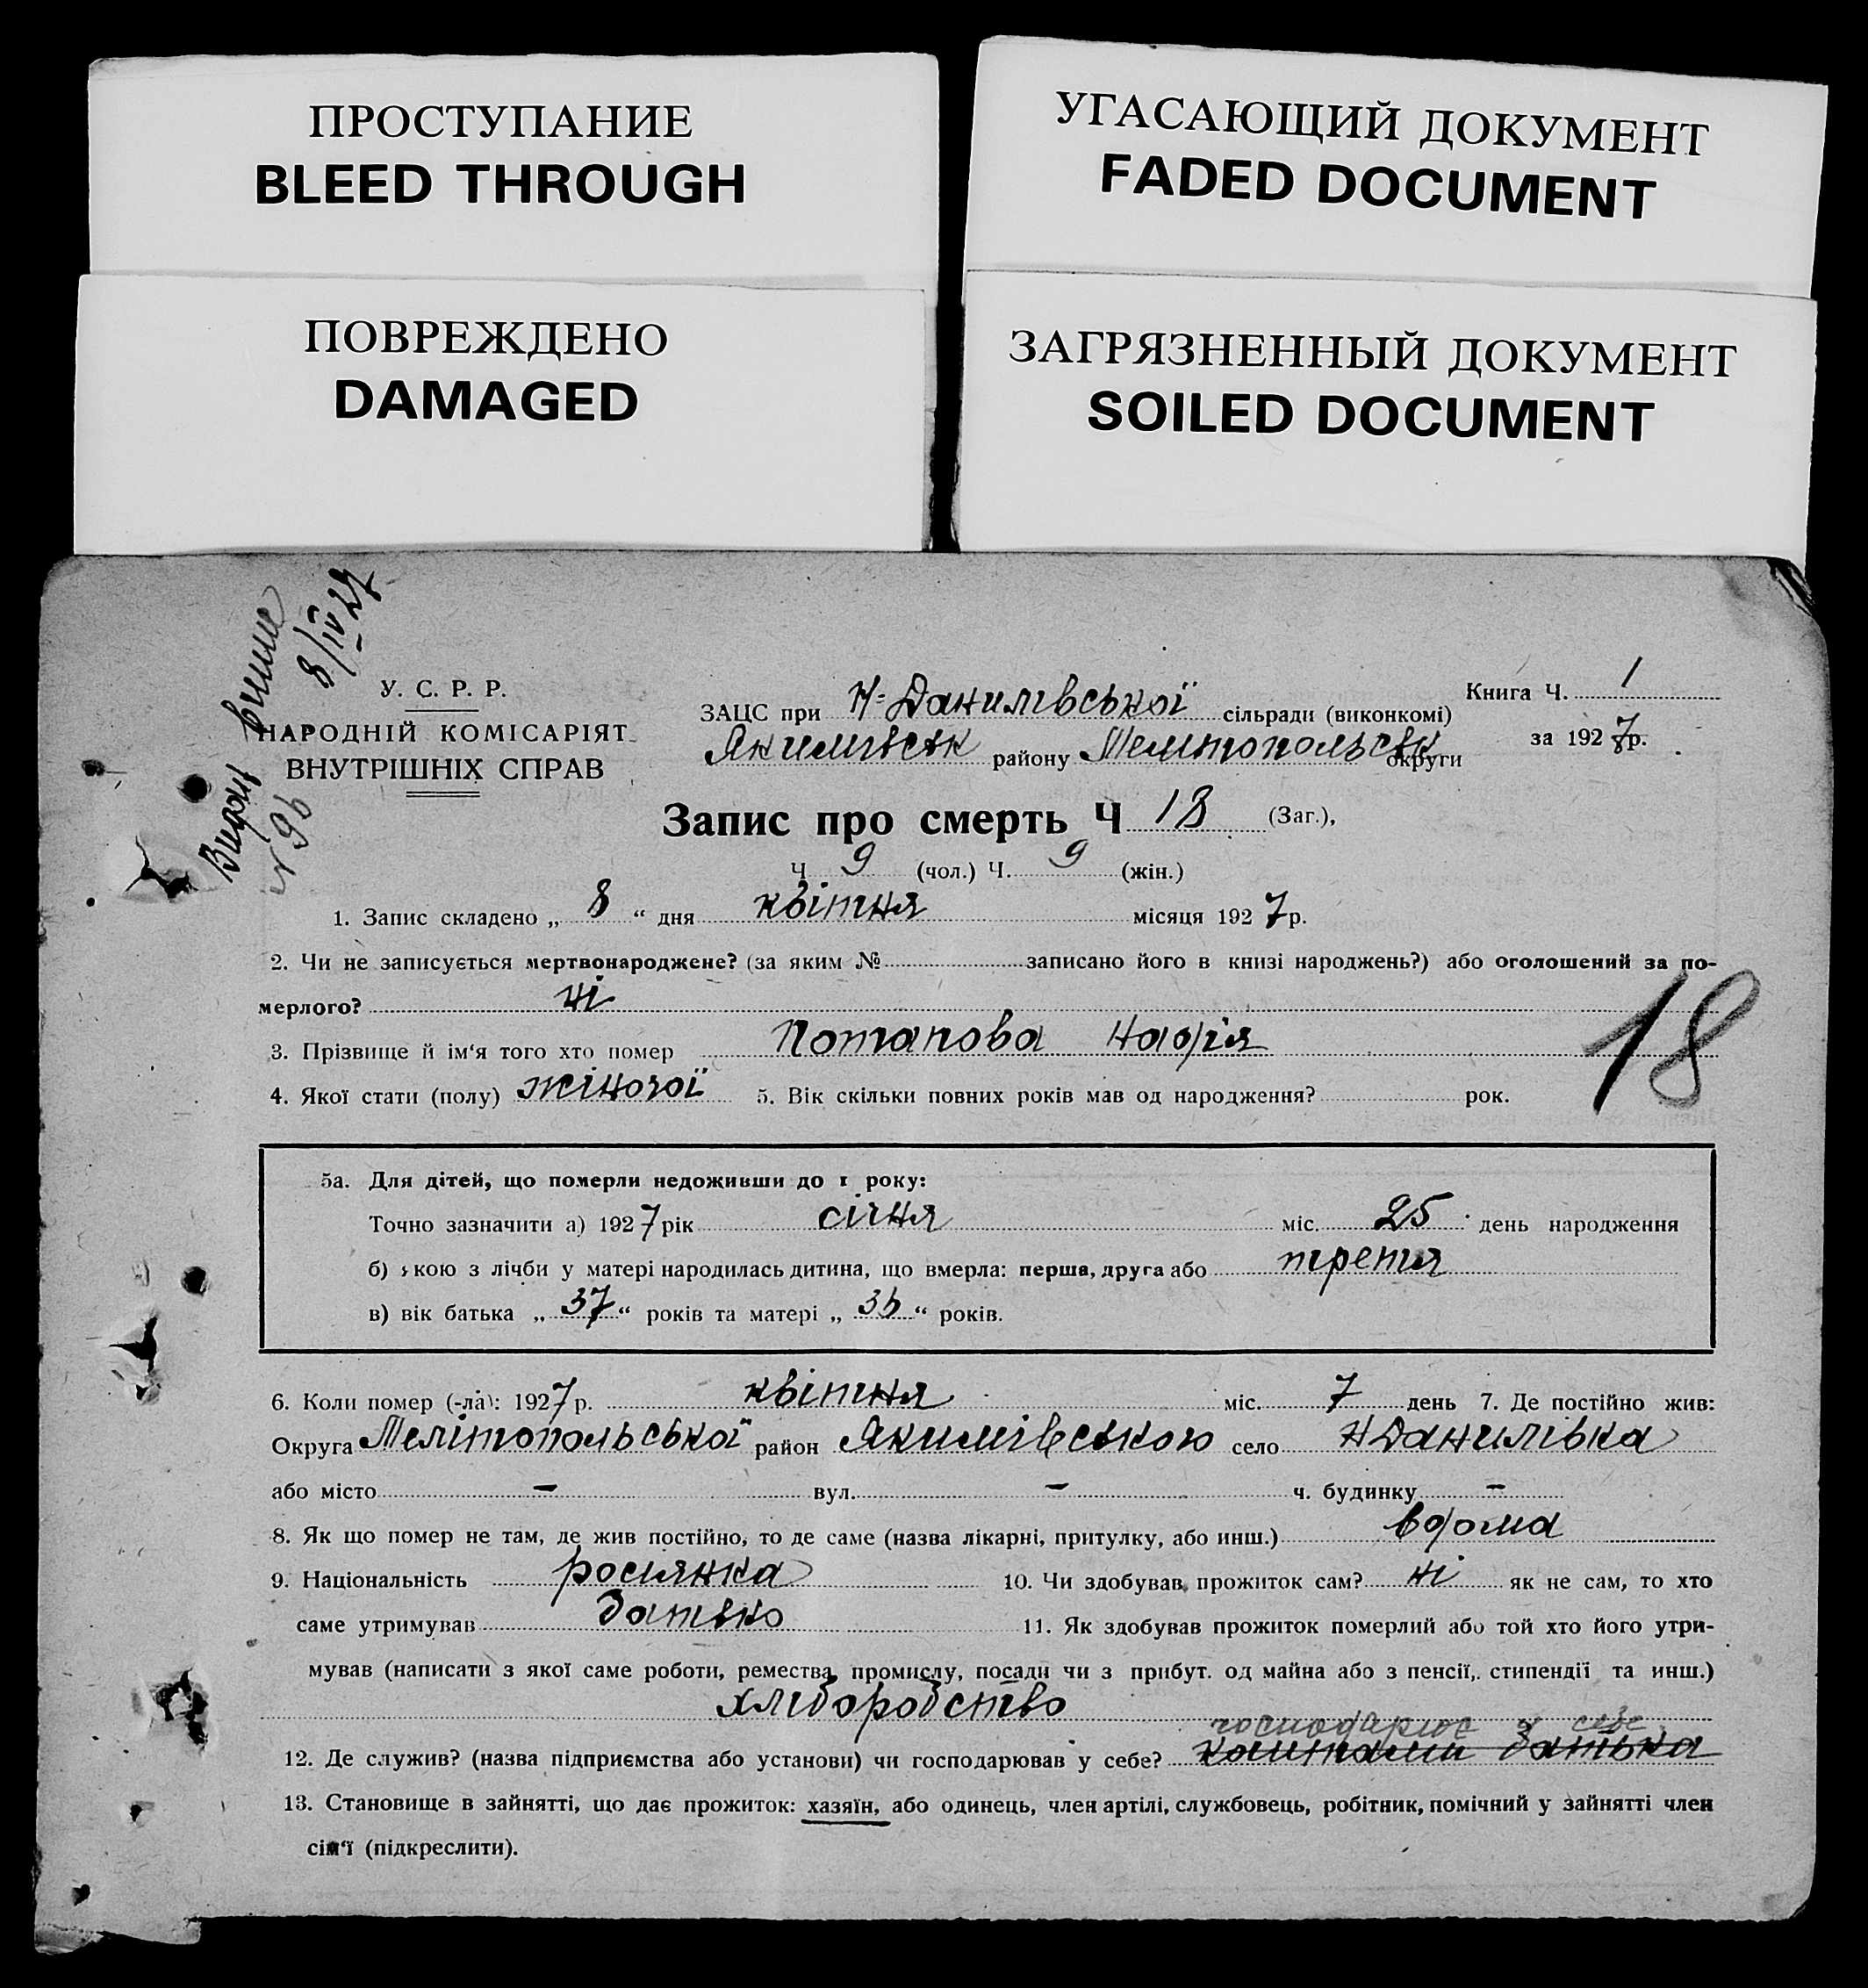 ПРОСТУПАНИЕ
BLEED THROUGH
УГАСАЮЩИЙ ДОКУМЕНТ
FADED DOCUMENT
ПОВРЕЖДЕНО
DAMAGED
ЗАГРЯЗНЕННЫЙ ДОКУМЕНТ
SOILED DOCUMENT
8/IV 27
№ 96
У. С. Р. Р.
НАРОДНІЙ КОМІСАРІЯТ
ВНУТРІШНІХ СПРАВ
Книга Ч. 1
за 1927р.
ЗАЦС при Н-Данилівської сільради (виконкомі)
Якимівськ району Мелитопольськ округи
Запис про смерть Ч 18 (Заг.),
Ч 9 (чол.) Ч. 9 (жін.)
1. Запис складено „ 8 “ дня квітня місяця 1927р.
2. Чи не записується мертвонароджене? (за яким № записано його в книзі народжень?) або оголошений за по-
мерлого? ні
18
3. Прізвище й ім‘я того хто помер Потапова Надія
4. Якої стати (полу) жіночої 5. Вік скільки повних років мав од народження? рок.
5а. Для дітей, що померли недоживши до 1 року:
Точно зазначити а) 1927 рік січня міс. 25 день народження
б) якою з лічби у матері народилась дитина, що вмерла: перша, друга або третя
в) вік батька „ 37 “ років та матері „ 36 “ років.
6. Коли помер (-ла): 1927 р. квітня міс. 7 день 7. Де постійно жив:
Округа Мелітопольської район Якимівського село НДанилівка
або місто – вул. – ч. будинку –
8. Як що помер не там, де жив постійно, то де саме (назва лікарні, притулку, або инш.) вдома
9. Національність росіянка 10. Чи здобував прожиток сам? ні як не сам, то хто
саме утримував батько 11. Як здобував прожиток померлий або той хто його утри-
мував (написати з якої саме роботи, ремества, промислу, посади чи з прибут. од майна або з пенсії, стипендії та инш.)
хліборобство
господарює у себе
12. Де служив? (назва підприємства або установи) чи господарював у себе? батька
13. Становище в зайнятті, що дає прожиток: хазяїн, або одинець, член артілі, службовець, робітник, помічний у зайнятті член
сім‘ї (підкреслити).